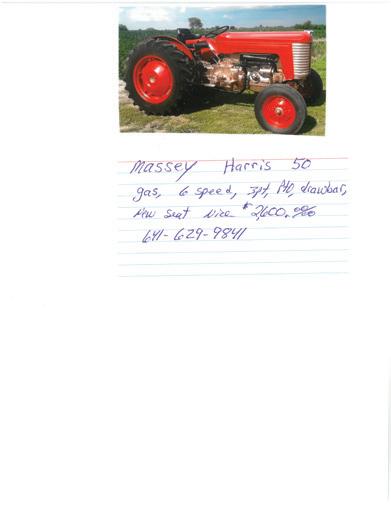 Massey Harris 50
gas, 6 speed, 3pt, PTO, drawbar,
New seat Nice $2,600.00
641-629-9841